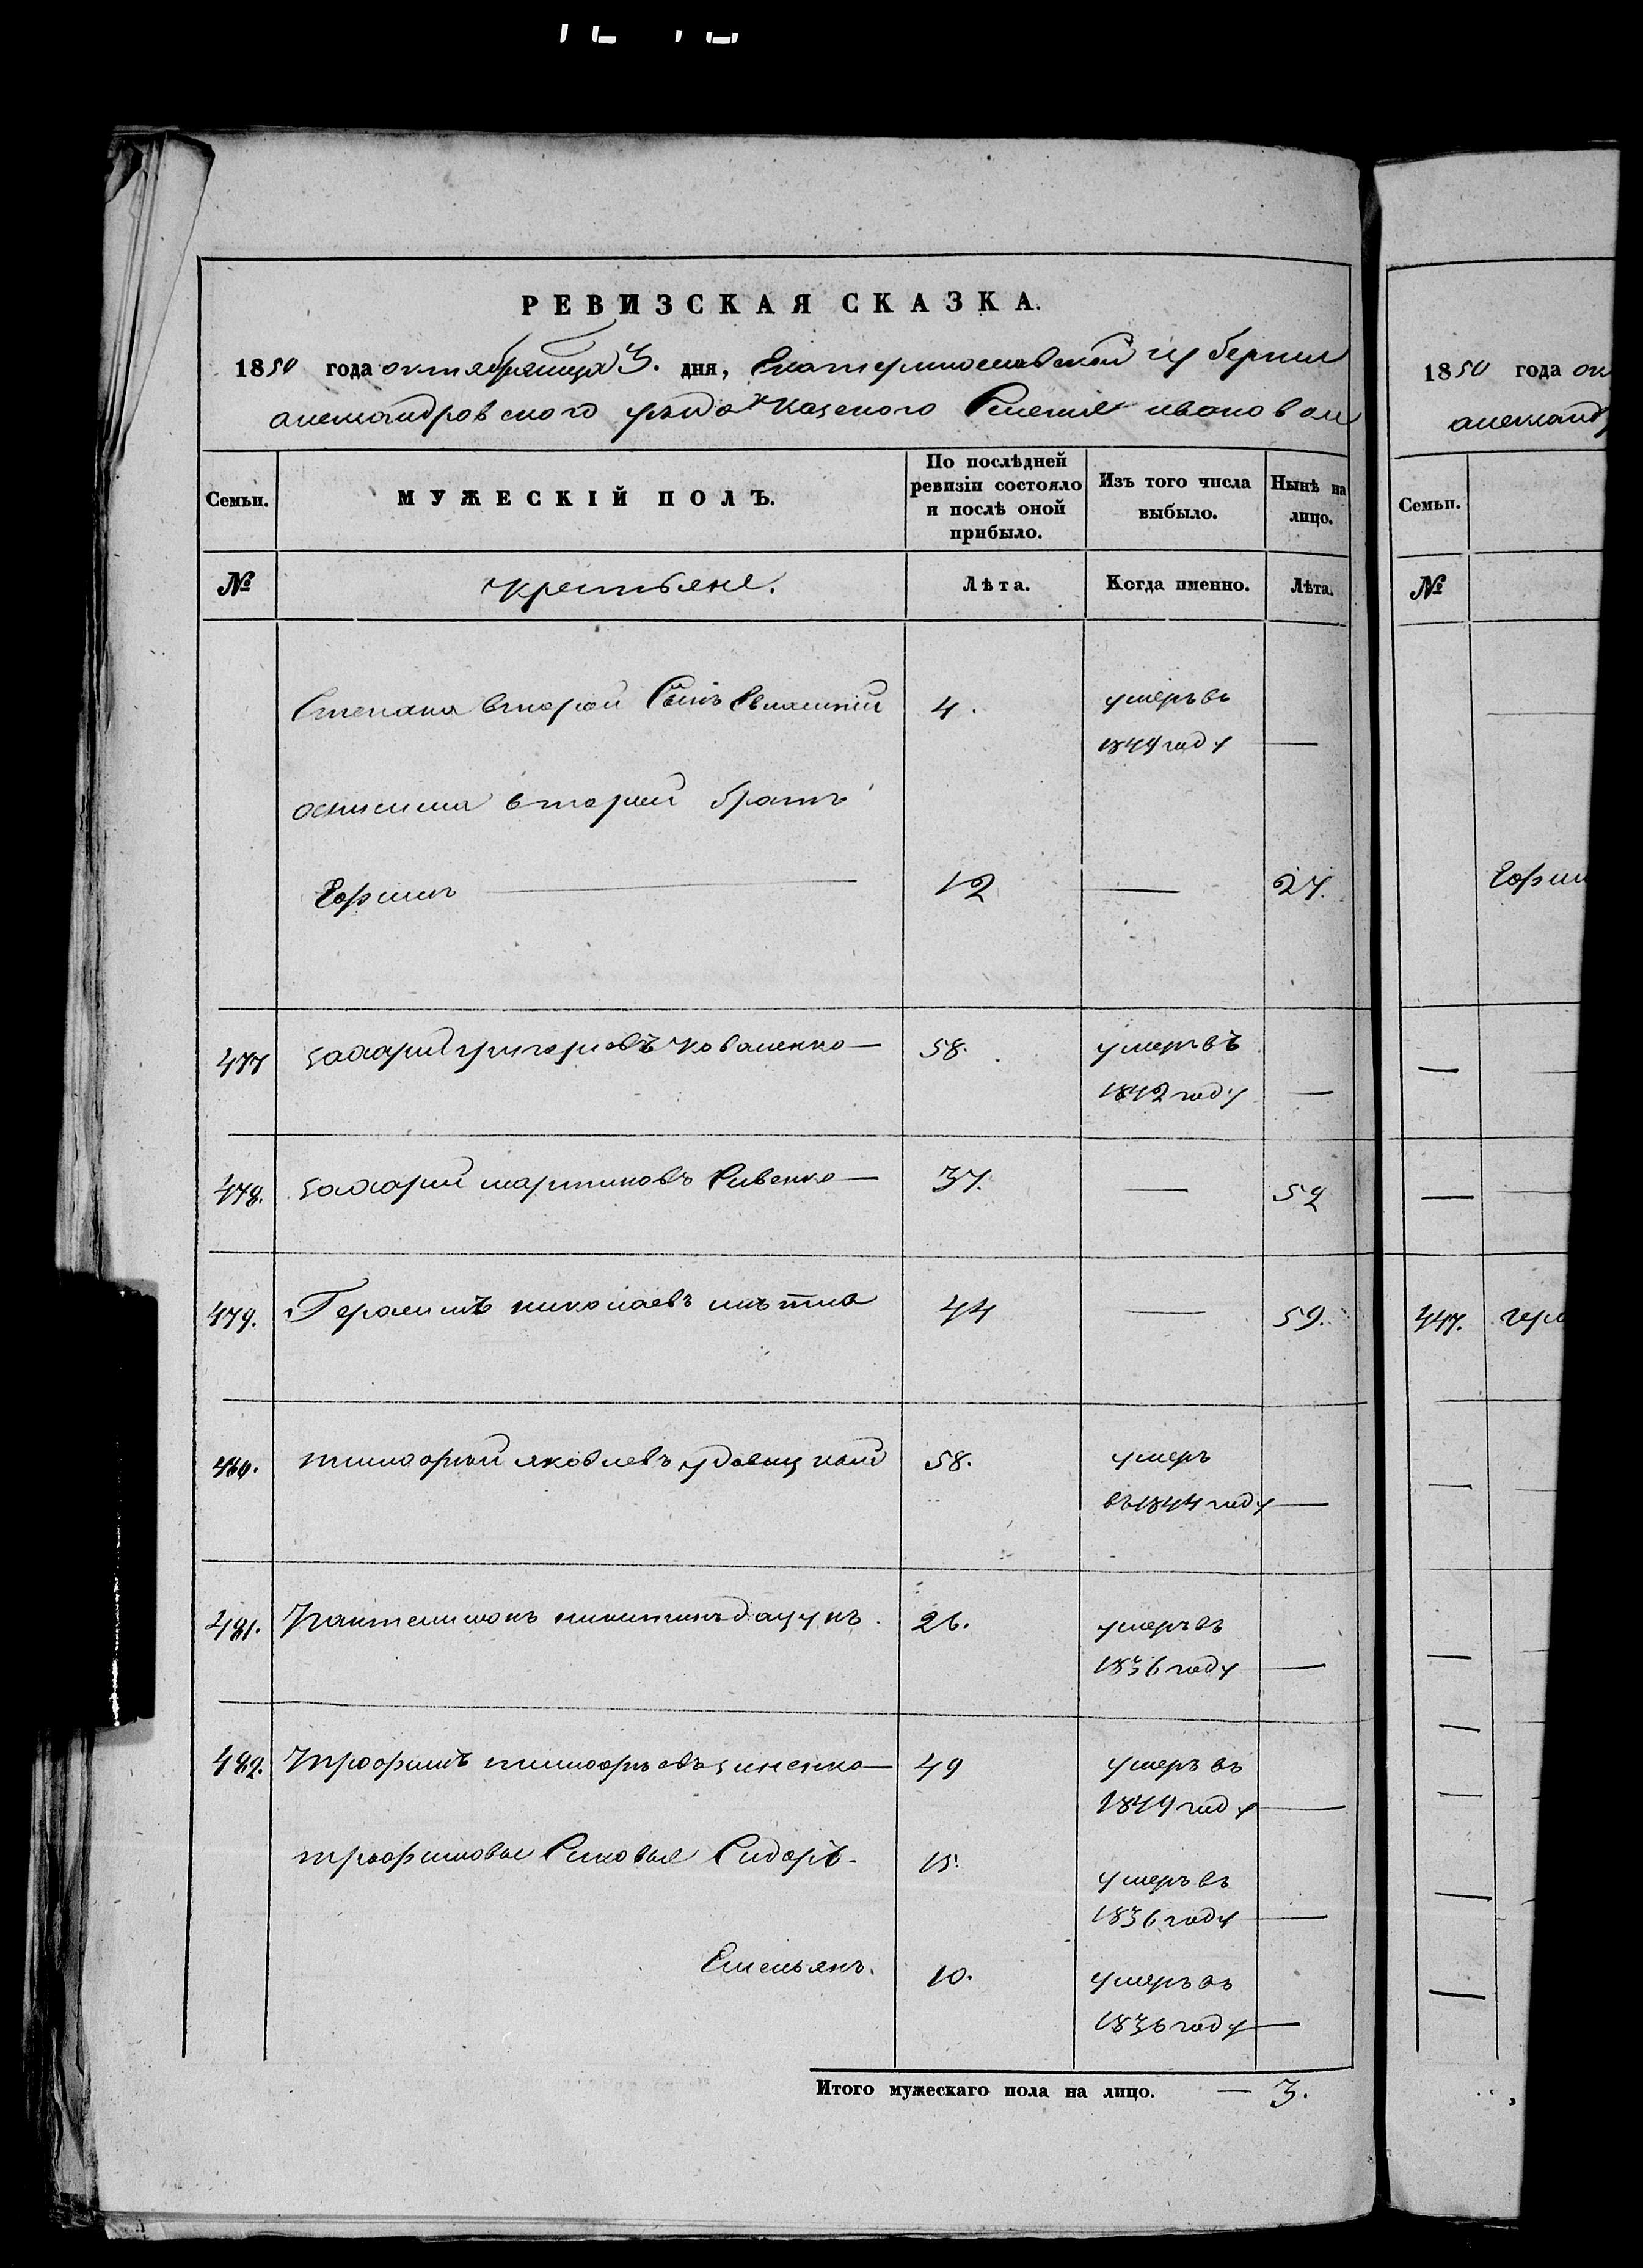 РЕВИЗСКАЯ СКАЗКА.
1850 года октября мца 3. дня, Екатеринославской губернии
александровского уезда казеного Селения ивановки
Семьи.
МУЖЕСКІЙ ПОЛЪ.
По послѣдней ревизіи состояло и послѣ оной прибыло.
Изъ того числа выбыло.
Нынѣ на лицо.
№
крестьяне.
Лѣта.
Когда именно.
Лѣта.
Степана вторай Сынъ 4. умеръ въ
1844 году —
второй братъ
Ефимъ — 12 — 27.
477 захарий григориевъ Коваленко — 58. умеръ въ
1842 году —
478. захарий мартиновъ Сивенко — 37. — 52
479. Герасимъ николаевъ 44 — 59.
480. тимофий яковлевъ удовицкой 58. умеръ
въ 1844 году —
481. Пантелимонъ никитинъ дацукъ. 26. умеръ въ
1836 году —
482. Трофимъ тимофѣевъ зиненко — 49 умеръ въ
1849 году —
трофимовы Синовья Сидоръ. 15. умеръ въ
1836 году —
Емельянъ. 10. умеръ въ
1836 году —
Итого мужескаго пола на лицо. — 3.
1850 года ок
александ
Семьи.
№
Ефим
447. гера